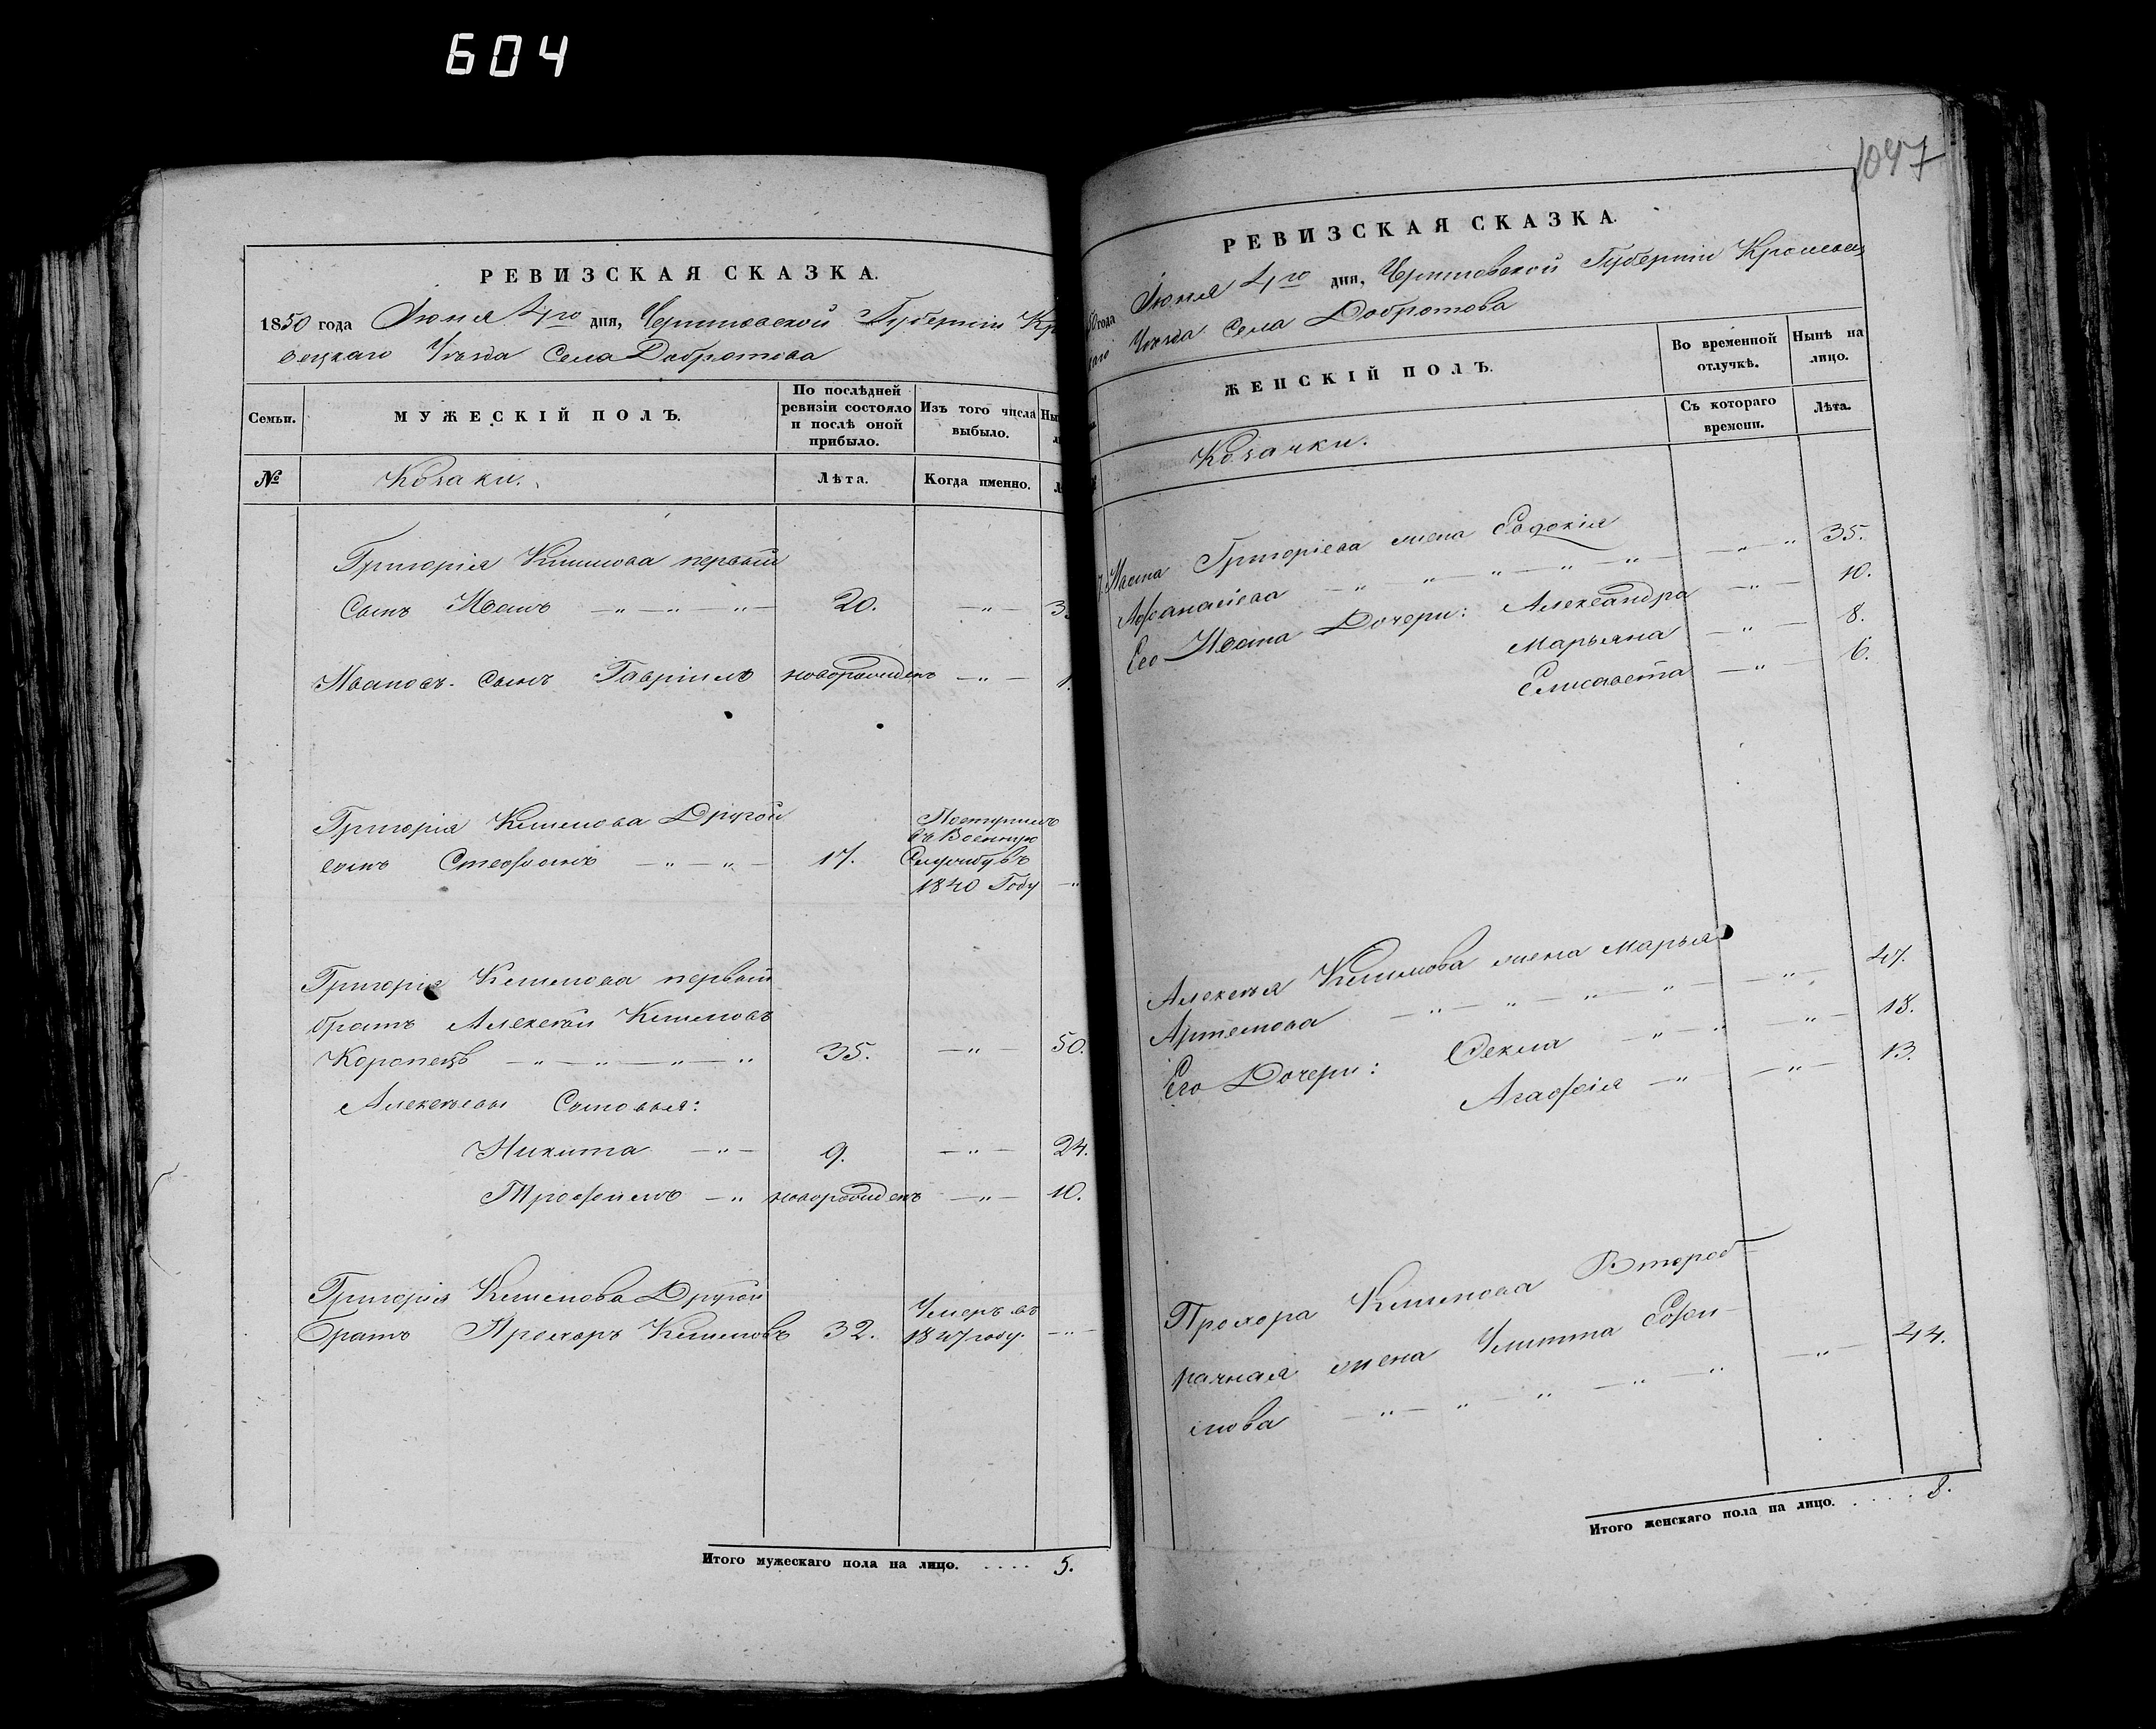 604
РЕВИЗСКАЯ СКАЗКА.
1850 года Іюня 4го дня, Черниговской Губерніи Кр
вецкаго Уѣзда Села Добротова
Семьи.
МУЖЕСКІЙ ПОЛЪ.
По послѣдней ревизіи состояло и послѣ оной прибыло.
Изъ того числа выбыло.
№
Козаки.
Лѣта.
Когда именно.
Григорія Клименова первый
Сынъ Иванъ — „ — „ — „ — 20. — „ —
Ивановъ сынъ Гавріилъ новорожденъ — „ — 1.
Григорія Клименова Другой
сынъ Стефанъ — „ — „ — 17.
Поступилъ
въ Военную
Службу въ
1840 Году — „
Григорія Клименова первый
братъ Алексѣй Клименовъ
— „ — „ — „ — „ 35. — „ — 50.
Алексѣевы Сыновья:
Никита — „ — 9. — „ — 24.
Трофимъ — „ новорожденъ — „ — 10.
Григорія Клименова Другой
Братъ Прохоръ Клименовъ 32.
Умеръ въ
1847 году. — „ —
Итого мужескаго пола на лицо. . . . . 5.
1047
РЕВИЗСКАЯ СКАЗКА.
50 года Іюня 4го дня, Черниговской Губерніи Кролевец
каго Уѣзда Села Добротова
ЖЕНСКІЙ ПОЛЪ.
Во временной отлучкѣ.
Нынѣ на лицо.
Съ котораго времени.
Лѣта.
Козачки.
Ивана Григоріева жена Евдокія
Афанасіева — „ — „ — „ — „ — „ — „ — „ 35.
Его Ивана Дочери: Александра — „ — 10.
Марьяна — „ — 8.
Елисавета — „ — 6.
Алексѣя Клименова жена Марья
Артемова — „ — „ — „ — „ — „ — 47.
Его Дочери: Ѳекла — „ — „ — „ — 18.
Агафія — „ — „ — 13.
Прохора Клименова Второб-
рачная жена Улитта Ефи
мова — „ — „ — „ — „ — „ — „ — 44.
Итого женскаго пола на лицо. . . . . 8.